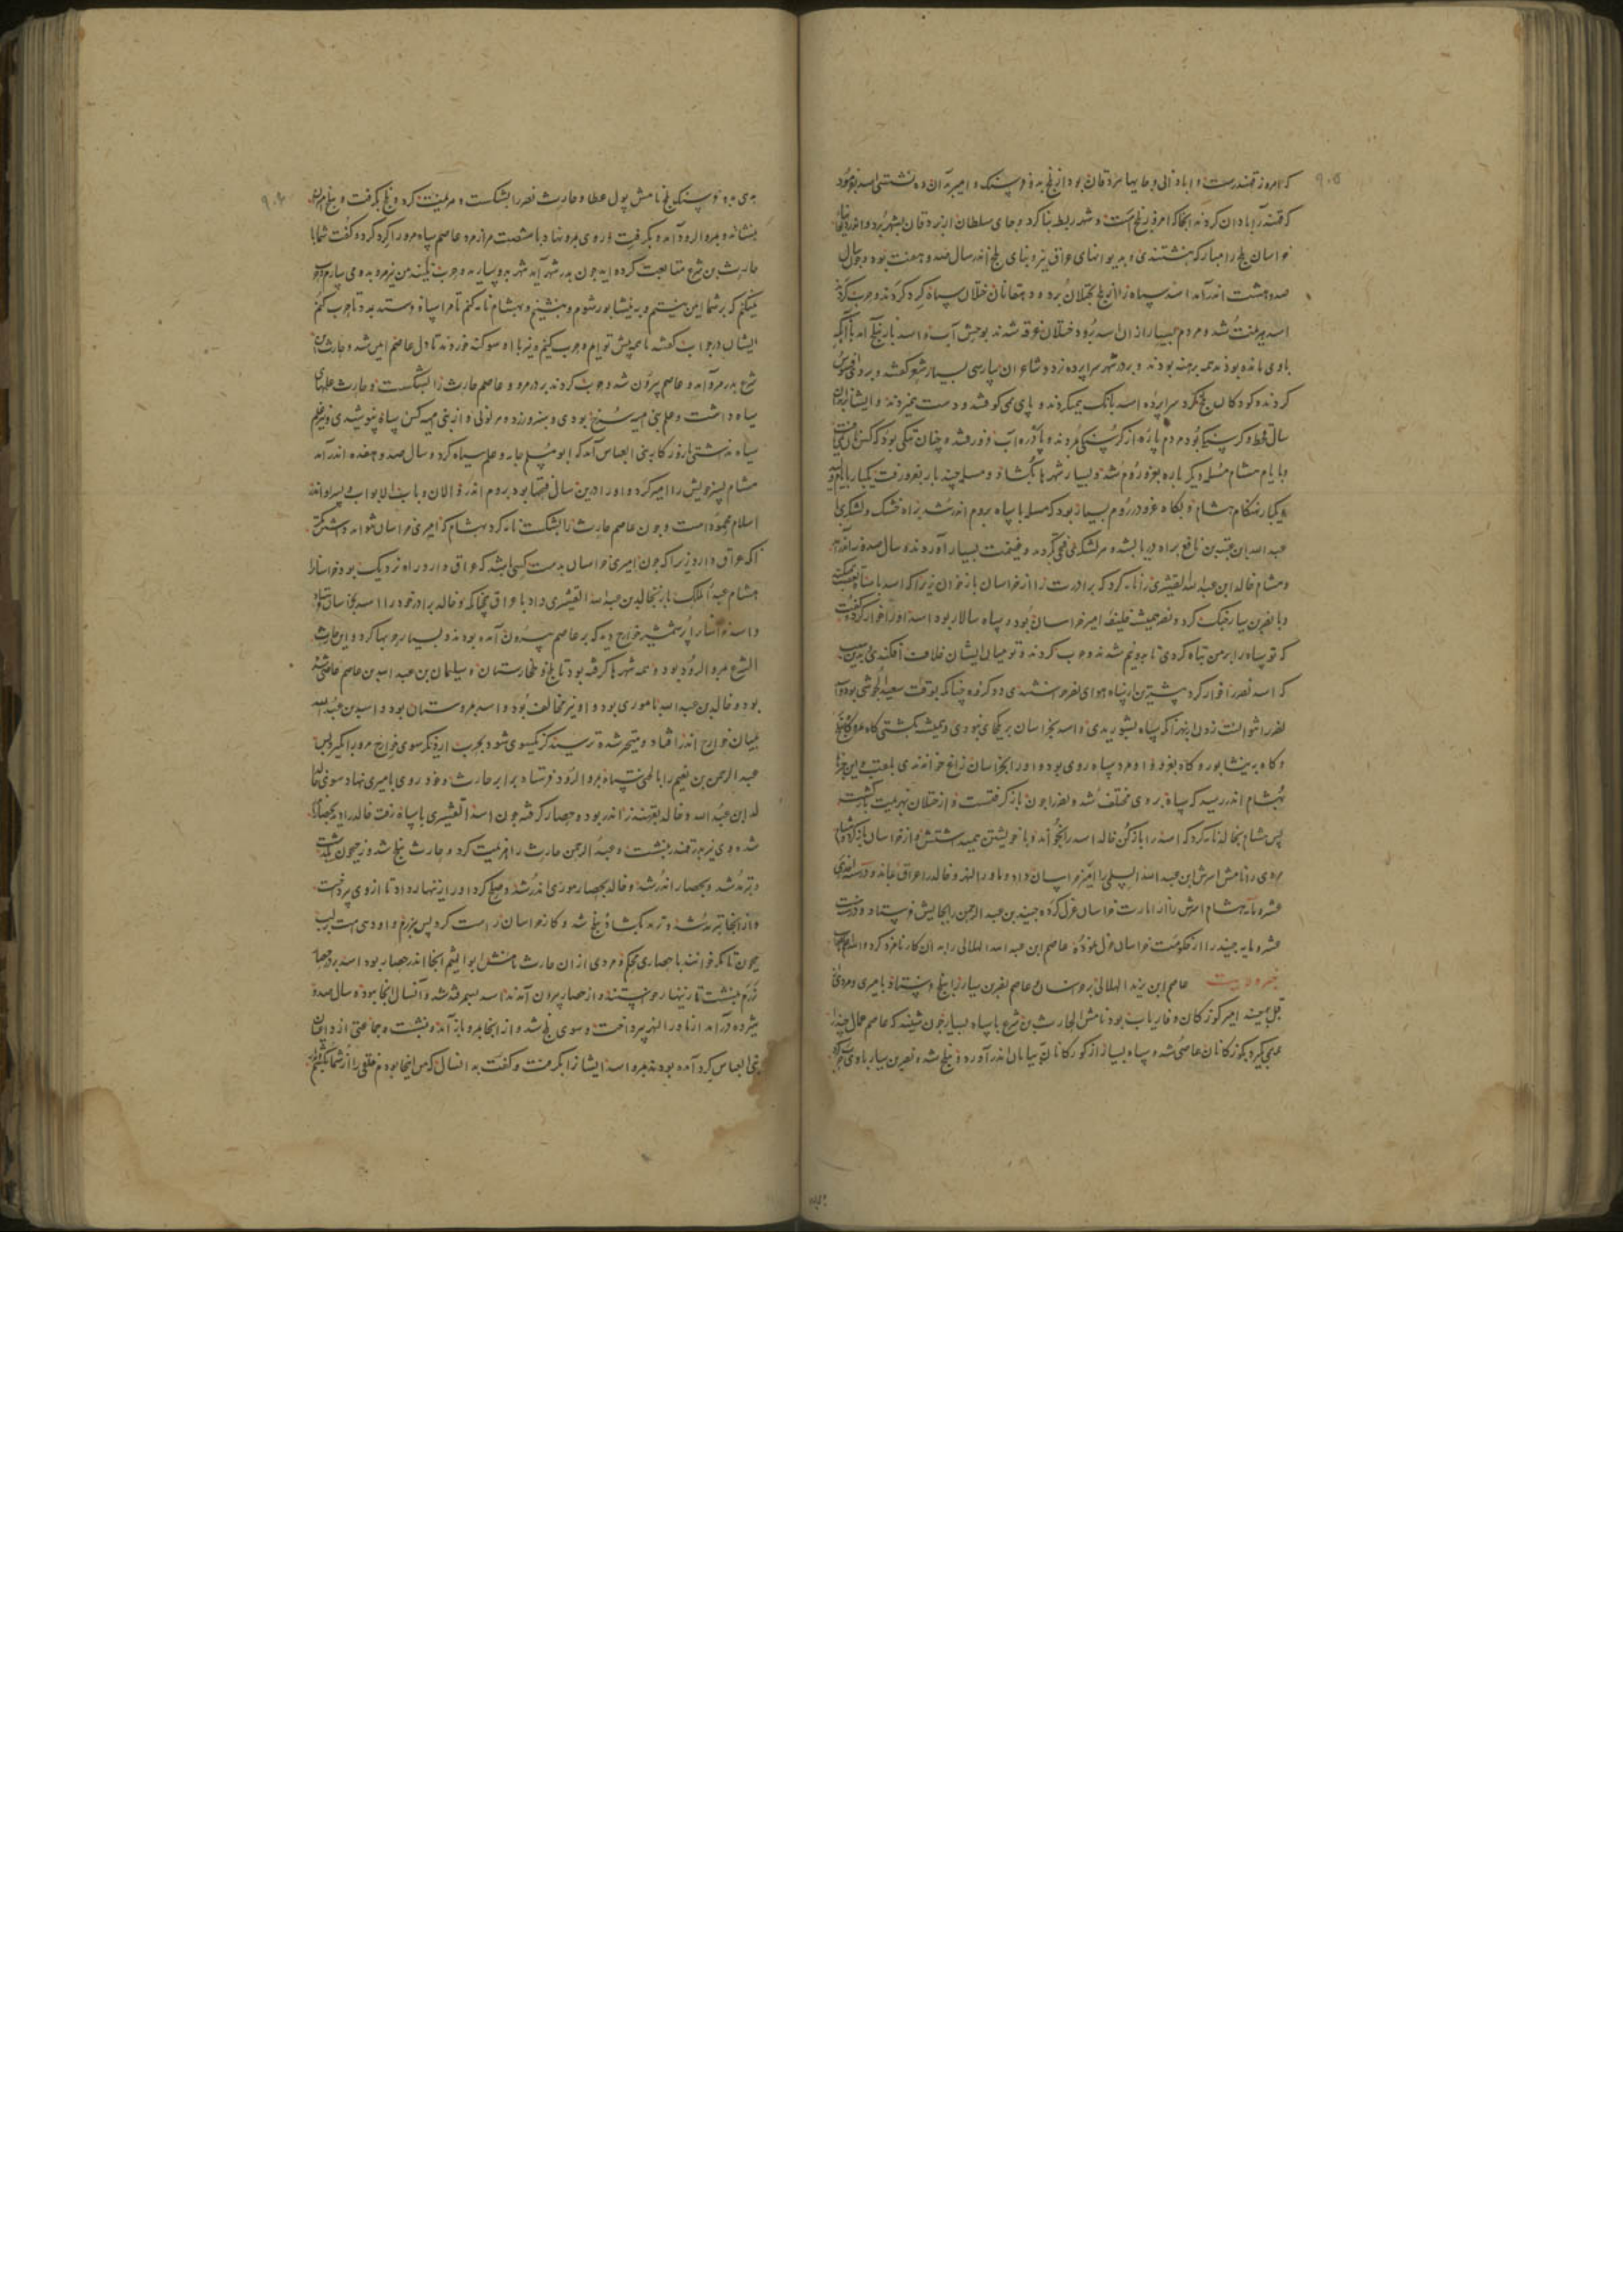 ۹۰۵
که امروز قهندرست و ابادانی وجایها بردقان بود از بلخ بدو فرسنک و امیر بدان ده نشستی اسد بفرمود
که قهندر آبادان کردند انجا که امروز بلخ است و شهر ربط بنا کرد و جای سلطان از بردقان بشهر برد و
خراسان بلخ را مبارکه نبشتندی و بدیوانهای عراق نیز و بنای بلخ اندر سال صد و هفت بود و چون سال
صد و هشت اندر آمد اسد سپاه را از بلخ بختلان برد و دهقانان ختلان سپاه کرد کردند و حرب کردند
اسد بهزیمت شد و مردم بسیار از ان اسد برود ختلان غرقه شدند بوحش آب و اسد باز ببلخ آمد با آنکه
با وی مانده بودند همه برهنه بودند و بر در شهر سراپرده زد و شاعران پارسی بسیار شعر کفتند و بر وی افسوس
کردند و کودکان بلخ کرد سراپرده اسد بانک میکردند و پای می کوفتند و دست میزدند و ایشانرا ان
سال قحط و کرسنکی بود مردم پاره از کرسنکی مردند و پاره در آب غرق شدند و چنان تنکی بود که کس
و بایام هشام مسلمه دیکر باره بغزو روم شد و بسیار شهرها بکشاد و مسلمه چند بار بغزو رفت یکبار بایام
و یکبار بهنکام هشام و بکاه غزو در روم بسیار بود که مسلمه با سپاه بروم اندر شد براه خشک و لشکری با
عبد الله ابن عقبه بن نافع براه دریا بشد و هر لشکری فتحی کردند و غنیمت بسیار آوردند و سال صد و نه اندر آمد
و هشام خالد ابن عبد الله القشیری را نامه کرد که برادرت را از خراسان باز خوان زیرا که اسد با سپاه تعصب
و با نصر بن سیار جنک کرد و نصر همیشه خلیفه امیر خراسان بود و سپاه سالار بود اسد او را خوار کرد و کفت
که تو سپاه را بر من تباه کردی تا بدو نیم شدند و حرب کردند و تو میان ایشان خلافت افکندی بدین سبب
که اسد نصر را خوار کرد بیشترین سپاه هوای نصر خواستندی دو کروه چنانکه بوقت سعید الحرشی بود
نصر را نتوانست زدن از بهر آنکه سپاه بشوریدی و اسد بخراسان بریکجای نبودی و همیشه بکشتی کاه بمرو کاه ببلخ
و کاه به نیشابور و کاه بغزو و او مرد سپاه روی بود و او را بخراسان زاغ خواندندی بلقب و این خبرها
بهشام اندر رسید که سپاه بر وی مختلف شد و نصر را چون باز کرفتست و از ختلان بهزیمت باز کشت
پس هشام بخالد نامه کرد که اسد را باز کن خالد اسد را بخواند و با خویشتن همی داشتش و از خراسان باز کرد و هشام
مردی را نامش اسرش ابن عبد الله السلمی را امیر خراسان داد و ماوراالنهر و خالد را عراق بماند و در سنه احدی
عشره مایه هشام اشرس را از امارت خراسان عزل کرده جنید بن عبد الرحمن را بجایش فرستاد و در سنه
عشره مایه جنید را از حکومت خراسان عزل نموده عاصم ابن عبد الله الهلالی را به ان کار نامزد کرد و الله اعلم
خبر ورود عاصم ابن یزید الهلالی بخراسان و عاصم نصر بن سیار را ببلخ فرستاد بامیری و مردی
امیر کوزکان و فاریاب بود نامش الحارث بن شرع با سپاه بسیار چون شنید که عاصم عمال جنید را
همی کیرد بکوزکانان عاصی شد و سپاه بسیار از کوزکانان بیابان اندر آورد و ببلخ شد و نصر بن سیار با وی حرب کرد
۹۰۶
بدی بدو فرسنکی بلخ نامش پول عطا و حارث نصر را بشکست و هزیمت کرد و بلخ بکرفت و ببلخ امیر
بنشاند و بمرو الرود آمد و بکرفت و روی بمرو نهاد با شصت هزار مرد عاصم سپاه مرو را کرد کرد و کفت شما با
حارث بن شرع متابعت کرده اید چون بدر شهر آید شهر بدو سپارید و حرب نکنید من نیز مرو بدو می سپارم و حرب
نمیکنم که بر شما ایمن نیستم و به نیشابور شوم و بنشینم و بهشام نامه کنم تا مرا سپاه فرستد بمدد تا حرب کنم
ایشان در جواب کفتند ما همه پیش توایم و حرب کنیم و نیز با او سوکند خوردند تا دل عاصم ایمن شد و حارث بن
شرع بدر مرو آمد و عاصم بیرون شد و حرب کردند بر در مرو و عاصم حارث را بشکست و حارث علمهای
سیاه داشت و علم بنی امیه سرخ بودی و سبز و زرد و هر لونی و از بنی امیه کس سیاه نپوشیدی و نیز علم
سیاه نداشتی تا روزکار بنی العباس آمد که ابو مسلم جامه و علم سیاه کرد و سال صد و هفده اندر آمد
هشام پسر خویش را امیر کرد و او را درین سالی فتحها بود بروم اندر و الان و باب الابواب و
اسلام مجموده است و چون عاصم حارث را بشکست نامه کرد بهشام که امیری خراسان نتواند داشت مکر
آنکه عراق دارد زیرا که چون امیری خراسان بدست کسی باشد که عراق دارد راه نزدیک بود خراسانرا
هشام عبد الملک باز بخالد بن عبد الله القشیری داد با عراق یکجا که و خالد برادر خود را اسد بخراسان فرستاد
و اسد خراسانرا پر شمشیر خوارج دید که بر عاصم بیرون آمده بودند و بسیار حربها کرد و این حارث
الشرع بمرو الرود بود و همه شهرها کرفته بود تا بلخ و طخارستان و سلیمان بن عبد الله بن عاصم عاصی شد
بود و خالد بن عبد الله نامور می بود و او نیز مخالف بود و اسد بمروستان بود و اسد بن عبد الله
بمیان خوارج اندر افتاد و متحیر شد و ترسید کز یکسوی شود بحرب از دیکر سوی خوارج مرو را بکیرد پس
عبد الرحمن بن نعیم را با لختی سپاه بمرو الرود فرستاد برابر حارث و خود روی بامیری نهاد سوی خا
لد ابن عبد الله و خالد بقهندز اندر بود و حصار کرفته چون اسد القشیری با سپاه رفت خالد را بد بحصار
شد و وی نیز بدر قهندر بنشست و عبد الرحمن حارث را هزیمت کرد و حارث ببلخ شد و ز جیحون بکذشت
و بترمذ شد و بحصار اندر شد و خالد بحصار مرزی اندر شد و صلح کرد او را زینهار داد تا از وی پرداخت
و از انجا بترمذ شد و ترمذ بکشاد و ببلخ شد و کار خراسان راست کرد پس بزم و او دهی است بر لب
جیحون تا نکر خوانند با حصاری محکم و مردی از ان حارث نامش ابو الهیثم انجا اندر حصار بود اسد بر در حصار
زم بنشست تا زینهار خواستند و از حصار بیرون آمدند اسد بسمرقند شد و آنسال انجا بود و سال صد و
هژده درآمد از ماورا النهر پرداخت و سوی بلخ شد و از انجا بمرو باز آمد و بنشست و جماعتی از داعیان
بنی العباس کرد آمده بودند بمرو اسد ایشانرا بکرفت و کفت بدان سال که من اینجا بودم خلقی را از شما بکشتم